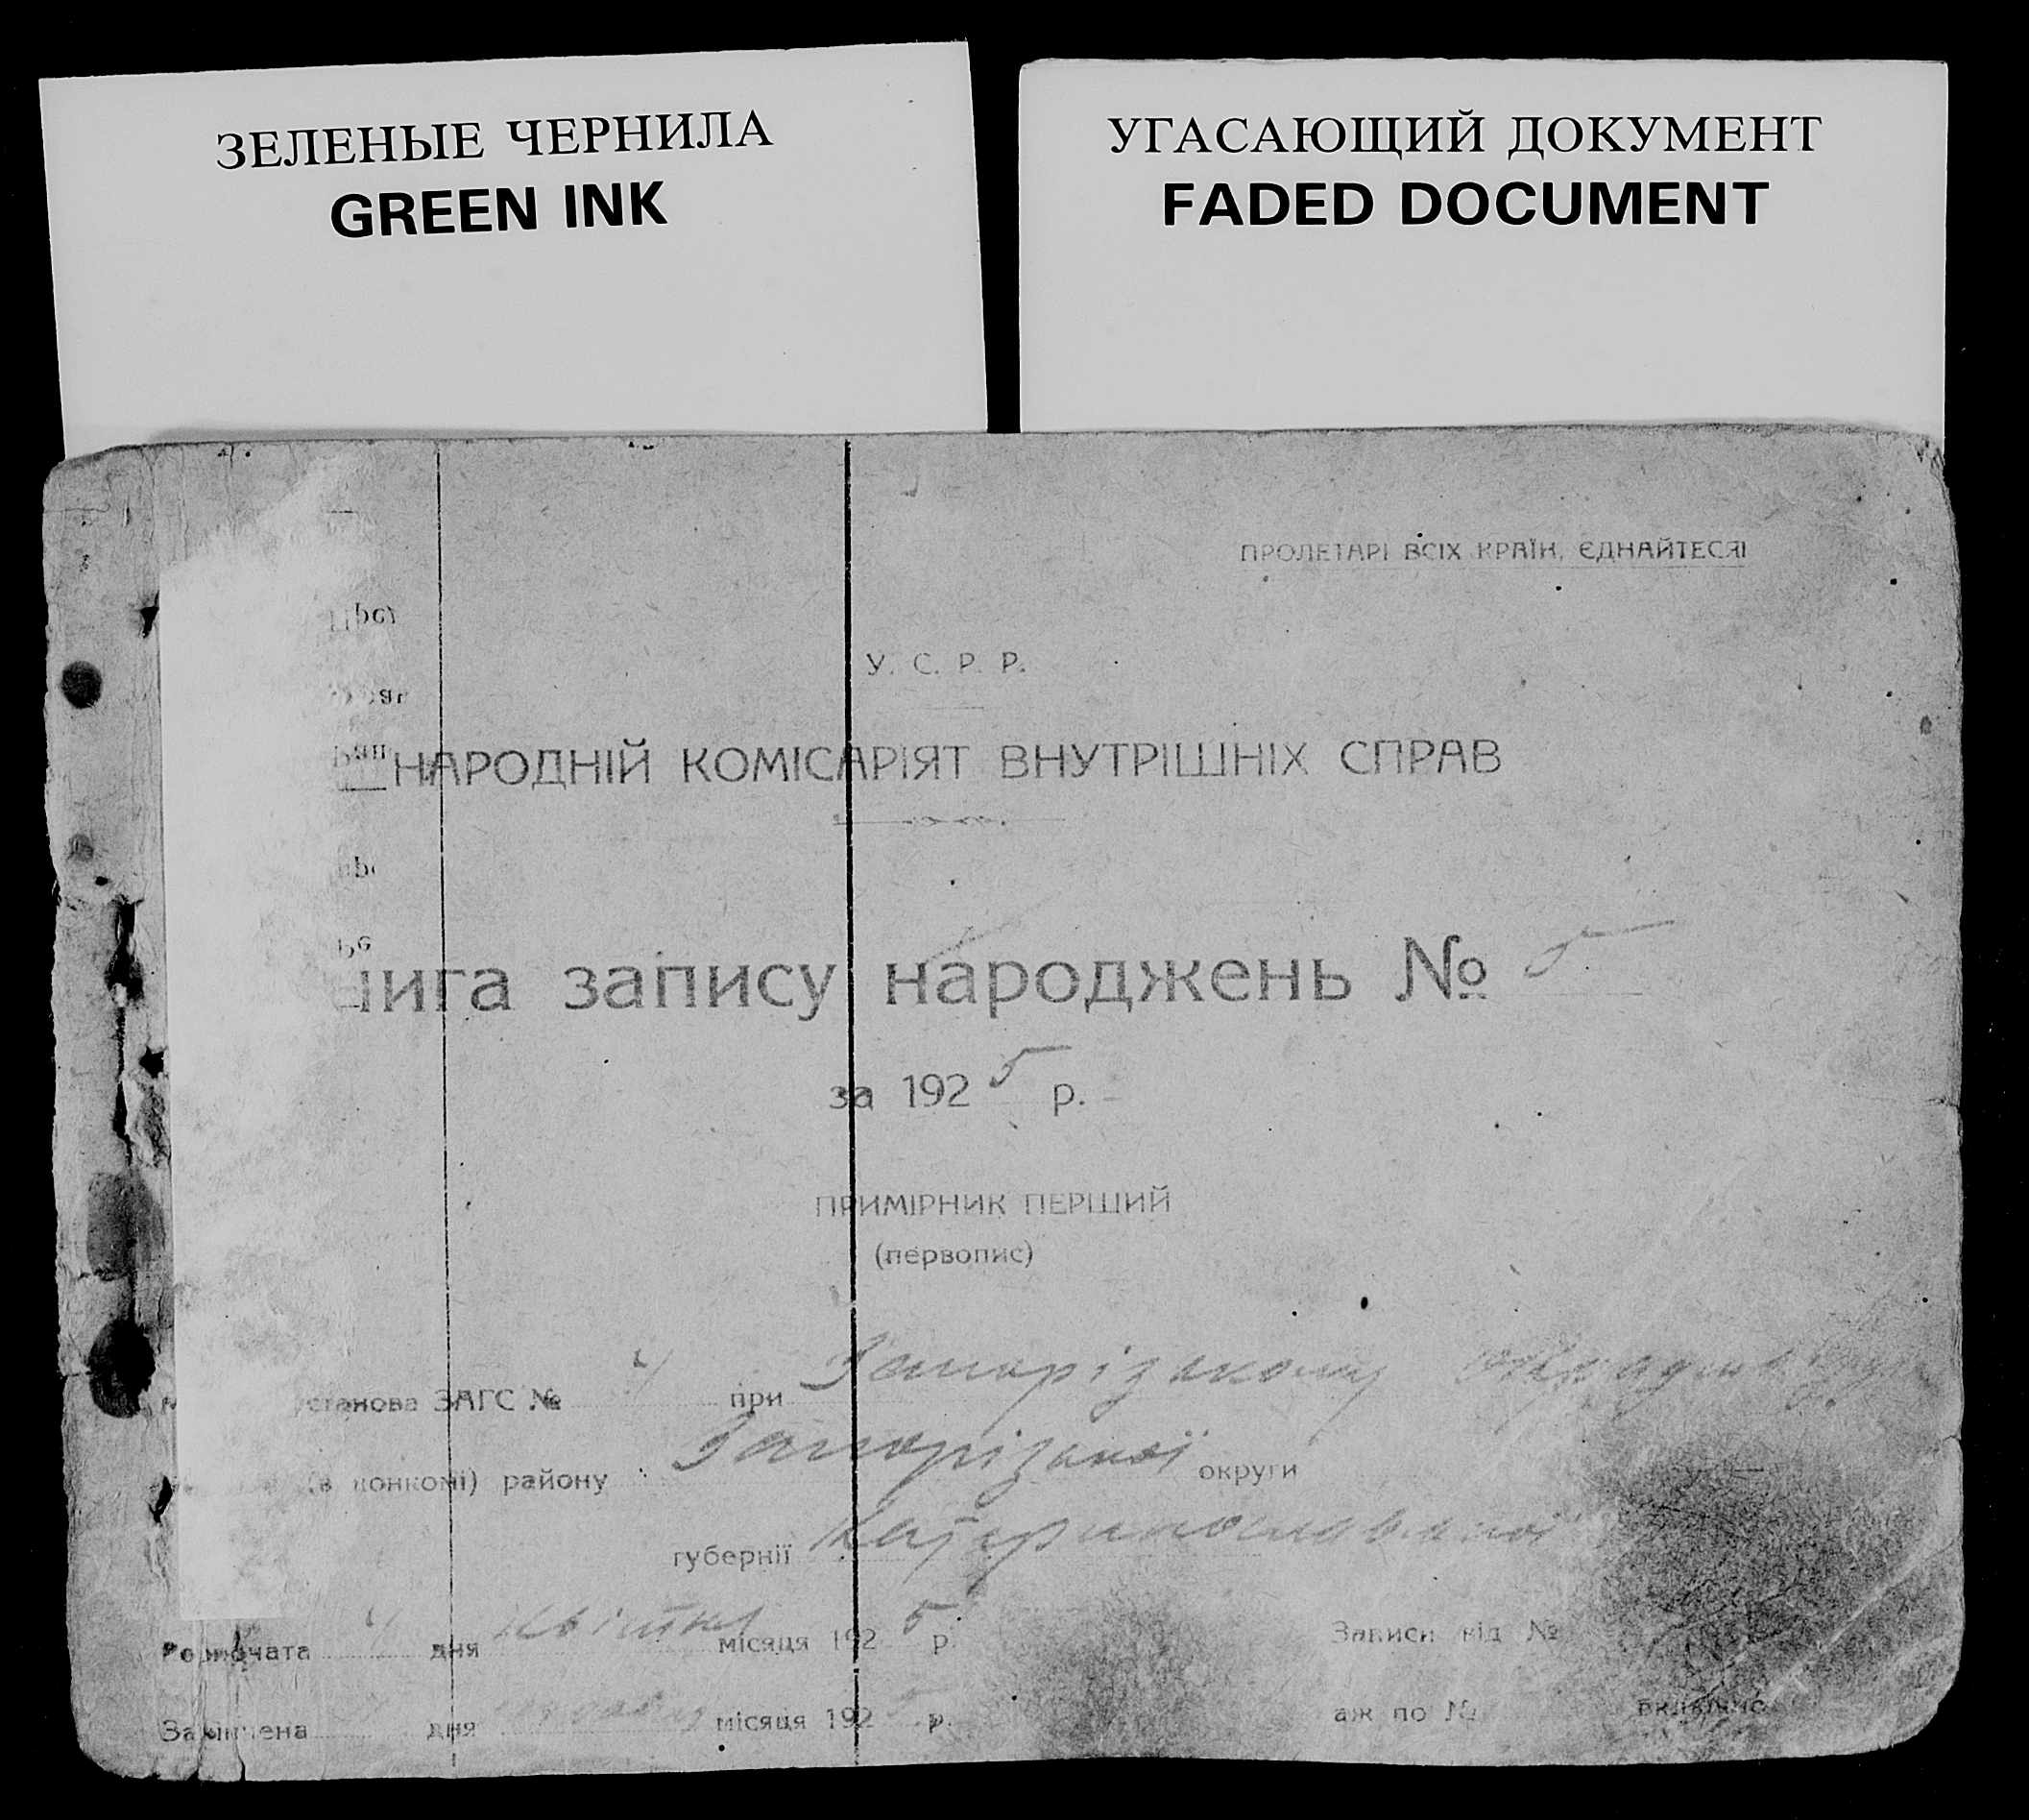 ЗЕЛЕНЫЕ ЧЕРНИЛА
GREEN INK
УГАСАЮЩИЙ ДОКУМЕНТ
FADED DOCUMENT
ПРОЛЕТАРІ ВСІХ КРАЇН, ЄДНАЙТЕСЯ!
У. С. Р. Р.
НАРОДНІЙ КОМІСАРІЯТ ВНУТРІШНІХ СПРАВ
нига запису народжень № 5
за 1925 р.
ПРИМІРНИК ПЕРШИЙ
(первопис)
установа ЗАГС № 4 при Запорізькому
(в конкомі) району Запорізької округи
губернії Катеринославської
Розпочата 4 дня квітня місяця 1925 р.
Записи від №
Закінчена дня місяця 1925 р.
аж по № включно